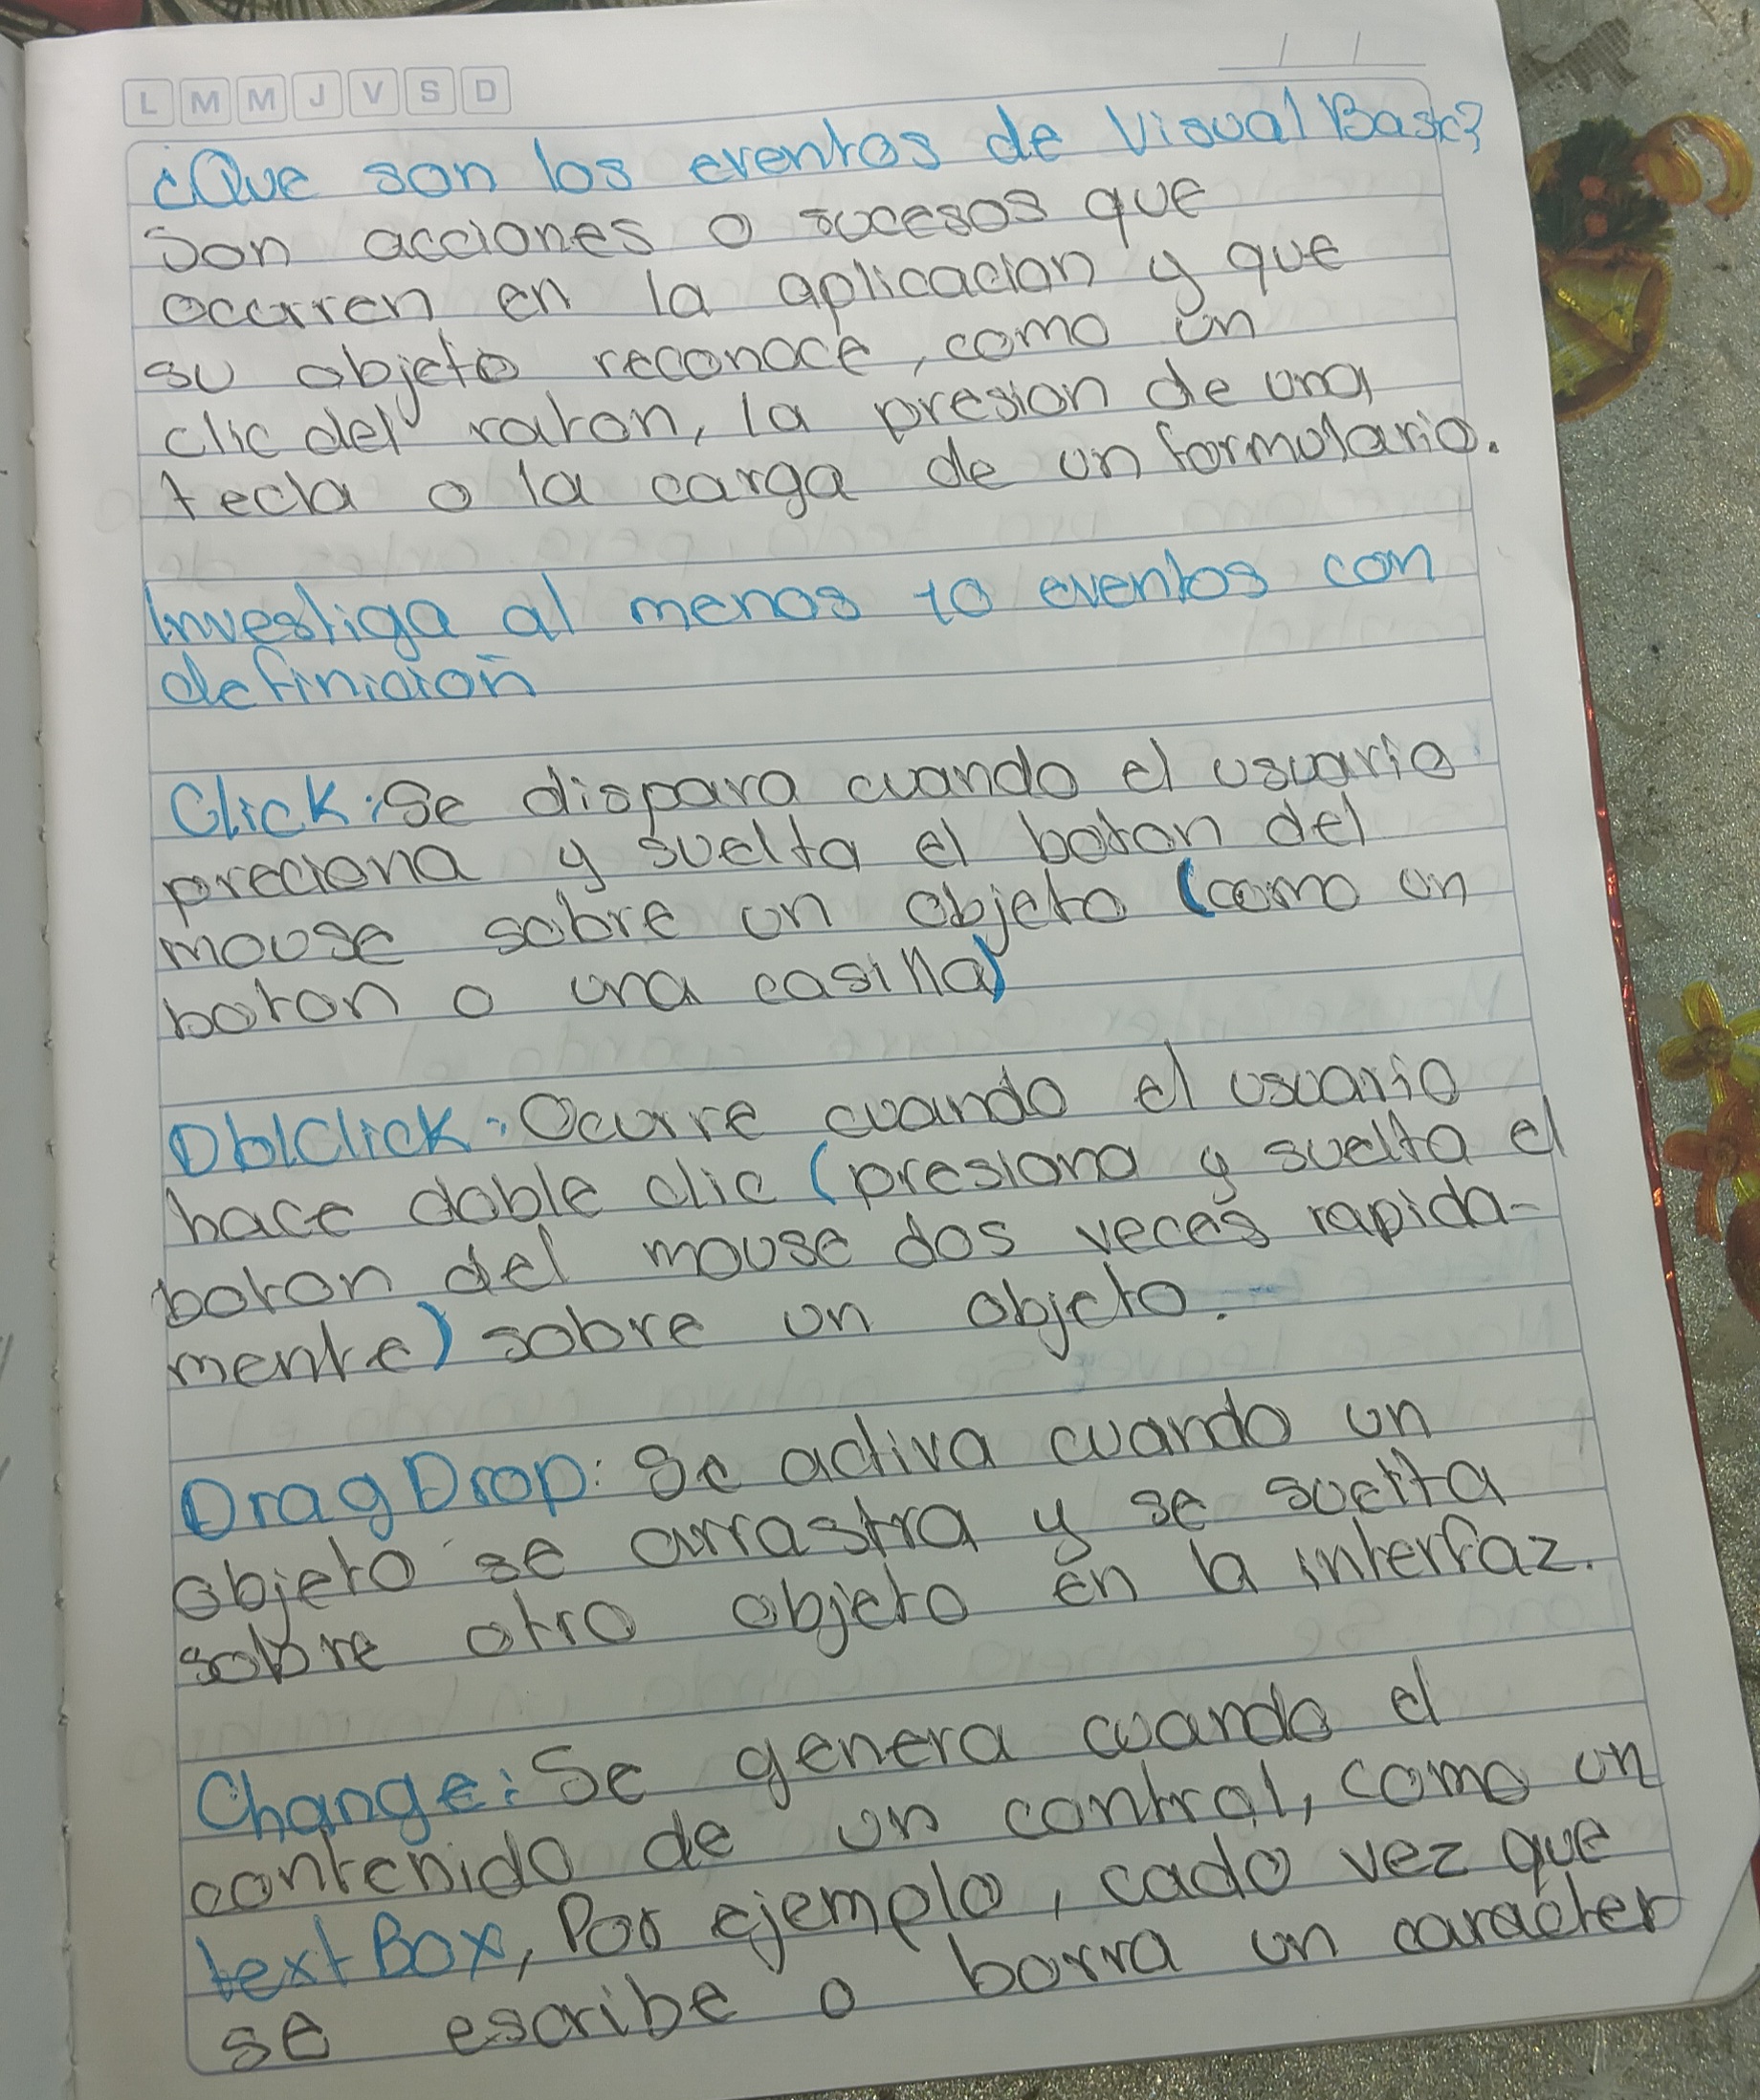 L M M J V S D
/ /
¿Que son los eventos de Visual Basic?
Son acciones o sucesos que
ocurren en la aplicacion y que
su objeto reconoce, como un
clic del raton, la presion de una
tecla o la carga de un formulario.
Investiga al menos 10 eventos con
definicion
Click: Se dispara cuando el usuario
preciona y suelta el boton del
mouse sobre un objeto (como un
boton o una casilla)
DblClick: Ocurre cuando el usuario
hace doble clic (presiona y suelta el
boton del mouse dos veces rapida-
mente) sobre un objeto.
DragDrop: Se activa cuando un
objeto se arrastra y se suelta
sobre otro objeto en la interfaz.
Change: Se genera cuando el
contenido de un control, como un
textBox, Por ejemplo, cado vez que
se escribe o borra un caracter